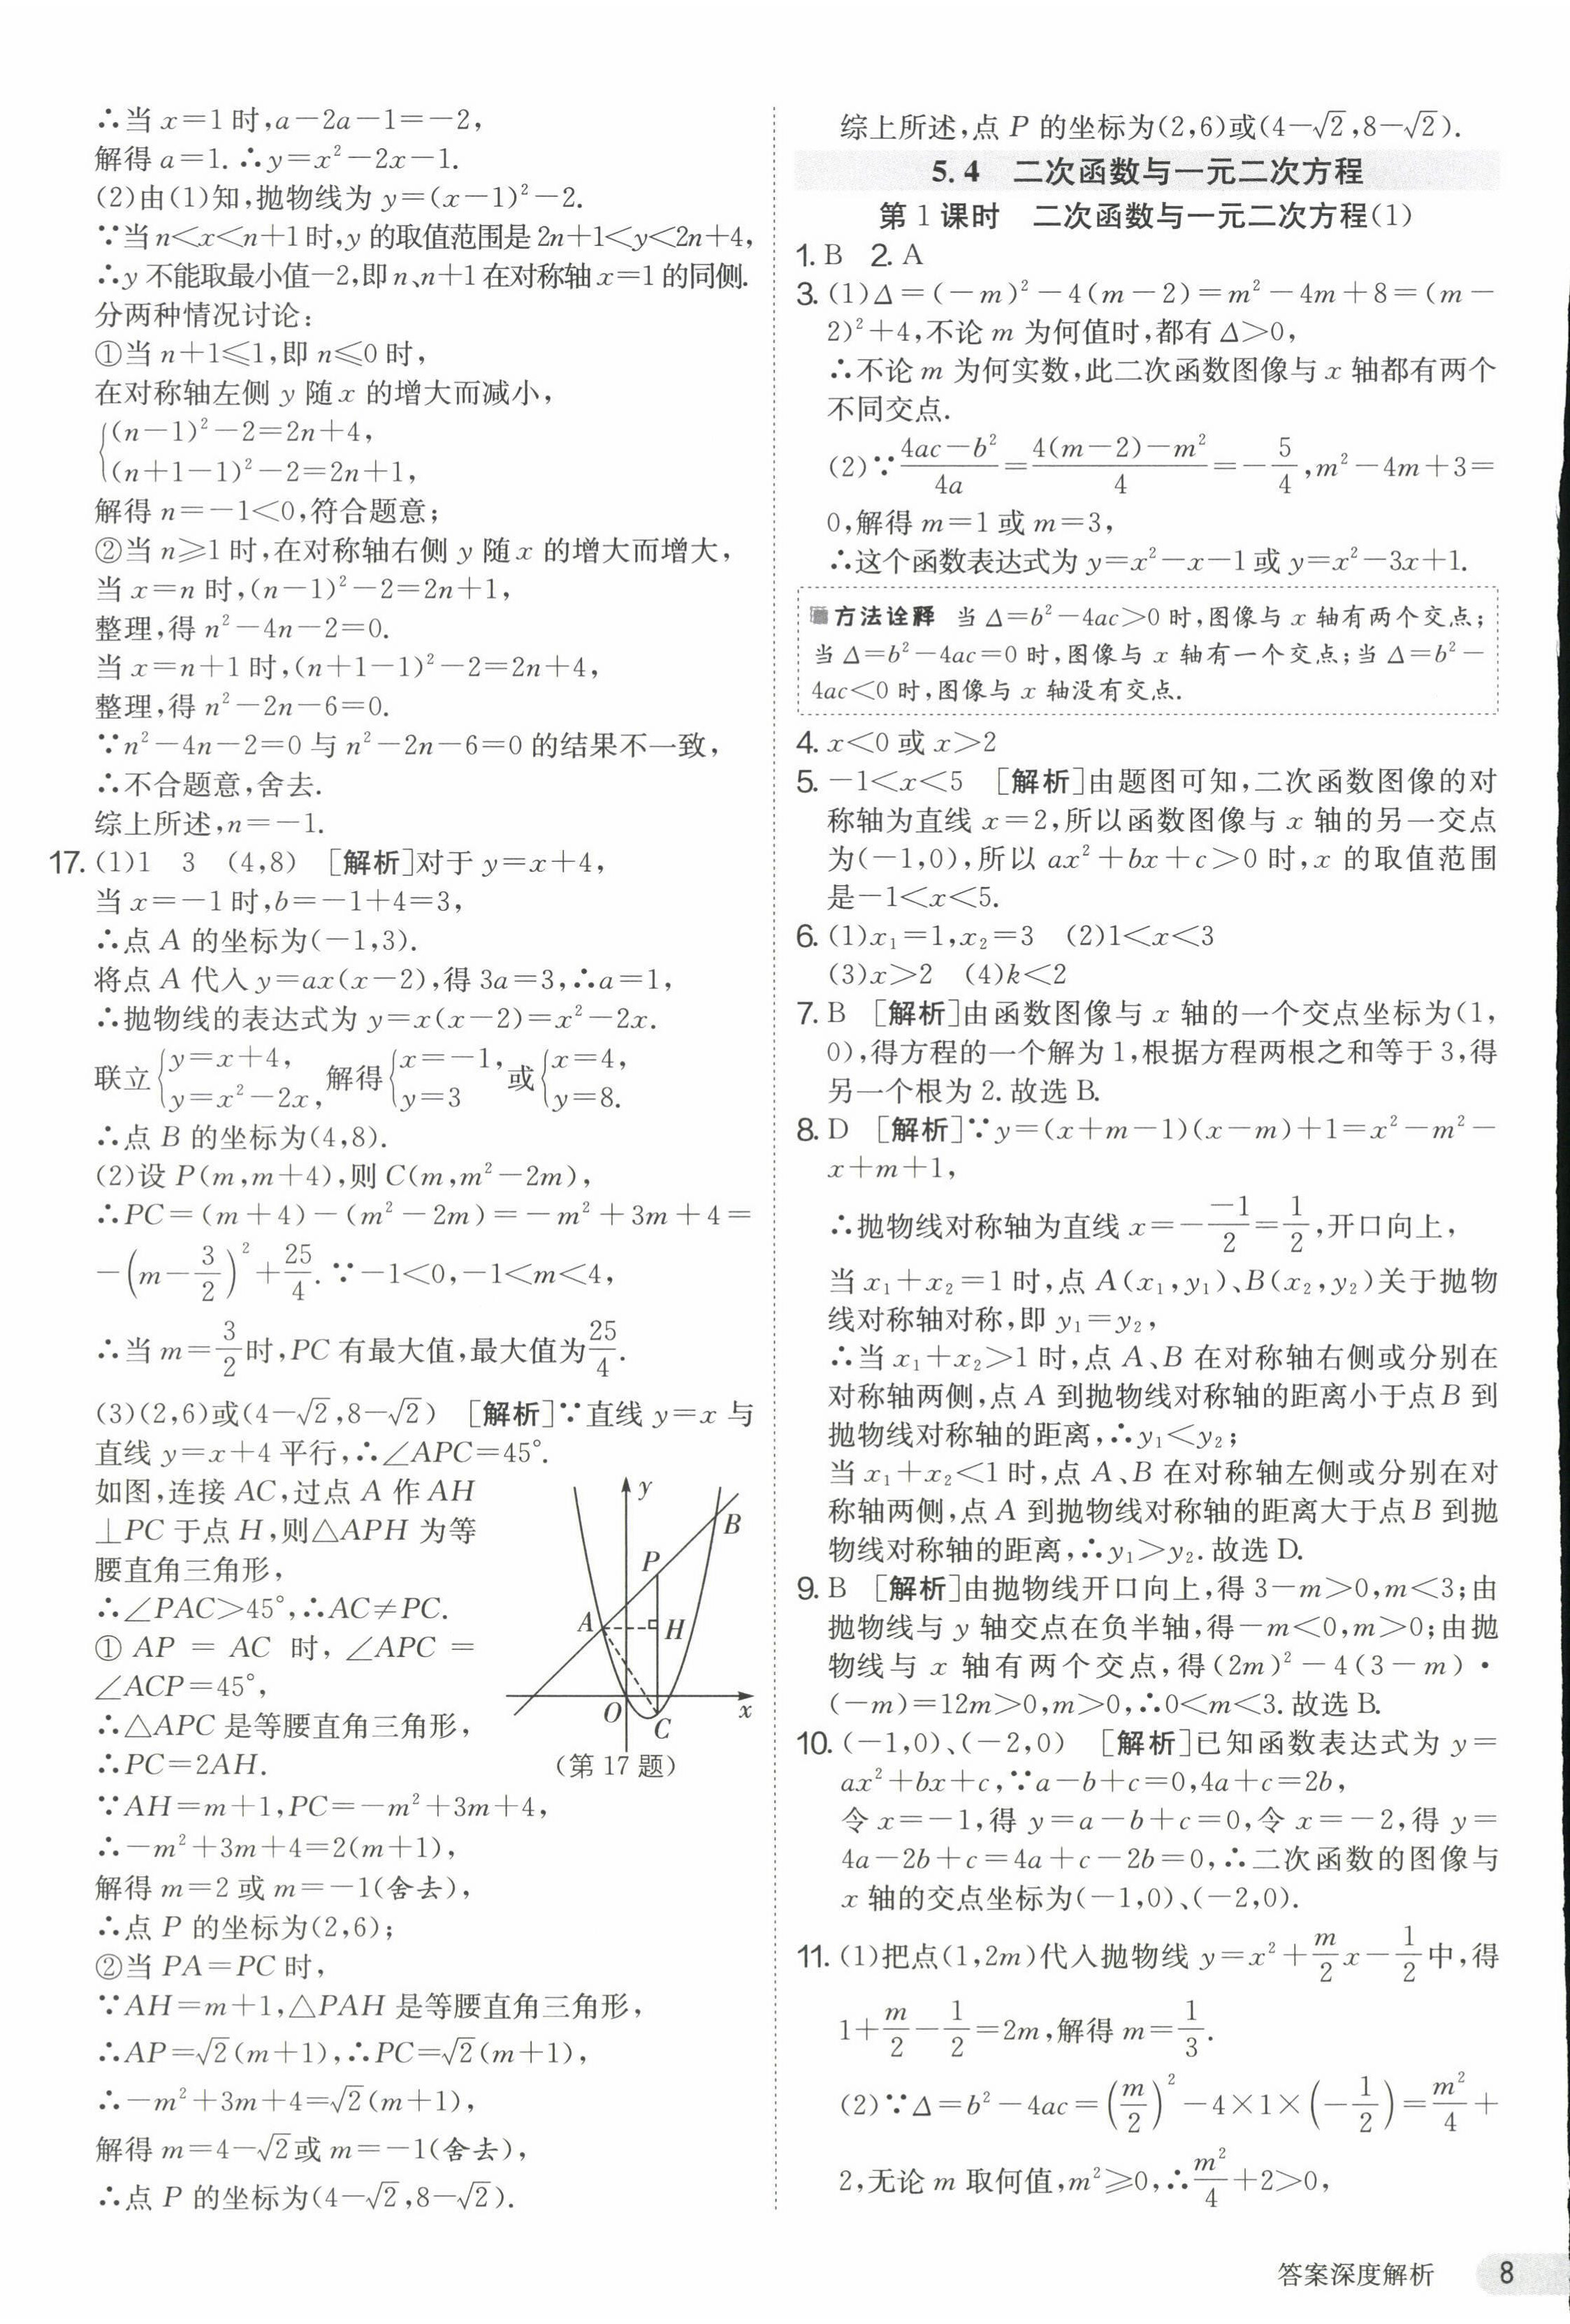 ∴当 x=1 时,a-2a-1=-2,
解得 a=1. ∴y=x²-2x-1.
(2)由(1)知,抛物线为 y=(x-1)²-2.
∵当 n<x<n+1 时,y 的取值范围是 2n+1<y<2n+4,
∴y 不能取最小值-2,即 n、n+1 在对称轴 x=1 的同侧.
分两种情况讨论:
①当 n+1⩽1,即 n⩽0 时,
在对称轴左侧 y 随 x 的增大而减小,
{(n-1)²-2=2n+4,
(n+1-1)²-2=2n+1,
解得 n=-1<0,符合题意;
②当 n⩾1 时,在对称轴右侧 y 随 x 的增大而增大,
当 x=n 时,(n-1)²-2=2n+1,
整理,得 n²-4n-2=0.
当 x=n+1 时,(n+1-1)²-2=2n+4,
整理,得 n²-2n-6=0.
∵n²-4n-2=0 与 n²-2n-6=0 的结果不一致,
∴不合题意,舍去.
综上所述,n=-1.
17. (1)1 3 (4,8) [解析]对于 y=x+4,
当 x=-1 时,b=-1+4=3,
∴点 A 的坐标为(-1,3).
将点 A 代入 y=ax(x-2),得 3a=3,∴a=1,
∴抛物线的表达式为 y=x(x-2)=x²-2x.
联立{y=x+4, y=x²-2x, 解得{x=-1, y=3 或{x=4, y=8.
∴点 B 的坐标为(4,8).
(2)设 P(m,m+4),则 C(m,m²-2m),
∴PC=(m+4)-(m²-2m)=-m²+3m+4=
-(m-3/2)²+25/4. ∵-1<0,-1<m<4,
∴当 m=3/2时,PC 有最大值,最大值为25/4.
(3)(2,6)或(4-√2,8-√2) [解析]∵直线 y=x 与
直线 y=x+4 平行,∴∠APC=45°.
如图,连接 AC,过点 A 作 AH
⊥PC 于点 H,则△APH 为等
腰直角三角形,
∴∠PAC>45°,∴AC≠PC.
① AP = AC 时,∠APC =
∠ACP=45°,
∴△APC 是等腰直角三角形,
∴PC=2AH.
y
B
P
A
H
O
C
x
(第 17 题)
∵AH=m+1,PC=-m²+3m+4,
∴-m²+3m+4=2(m+1),
解得 m=2 或 m=-1(舍去),
∴点 P 的坐标为(2,6);
②当 PA=PC 时,
∵AH=m+1,△PAH 是等腰直角三角形,
∴AP=√2(m+1),∴PC=√2(m+1),
∴-m²+3m+4=√2(m+1),
解得 m=4-√2或 m=-1(舍去),
∴点 P 的坐标为(4-√2,8-√2).
综上所述,点 P 的坐标为(2,6)或(4-√2,8-√2).
5.4 二次函数与一元二次方程
第 1 课时 二次函数与一元二次方程(1)
1. B 2. A
3. (1)Δ=(-m)²-4(m-2)=m²-4m+8=(m-
2)²+4,不论 m 为何值时,都有 Δ>0,
∴不论 m 为何实数,此二次函数图像与 x 轴都有两个
不同交点.
(2)∵(4ac-b²)/4a=(4(m-2)-m²)/4=-5/4,m²-4m+3=
0,解得 m=1 或 m=3,
∴这个函数表达式为 y=x²-x-1 或 y=x²-3x+1.
方法诠释 当 Δ=b²-4ac>0 时,图像与 x 轴有两个交点;
当 Δ=b²-4ac=0 时,图像与 x 轴有一个交点;当 Δ=b²-
4ac<0 时,图像与 x 轴没有交点.
4. x<0 或 x>2
5. -1<x<5 [解析]由题图可知,二次函数图像的对
称轴为直线 x=2,所以函数图像与 x 轴的另一交点
为(-1,0),所以 ax²+bx+c>0 时,x 的取值范围
是-1<x<5.
6. (1)x₁=1,x₂=3 (2)1<x<3
(3)x>2 (4)k<2
7. B [解析]由函数图像与 x 轴的一个交点坐标为(1,
0),得方程的一个解为 1,根据方程两根之和等于 3,得
另一个根为 2. 故选 B.
8. D [解析]∵y=(x+m-1)(x-m)+1=x²-m²-
x+m+1,
∴抛物线对称轴为直线 x=--1/2=1/2,开口向上,
当 x₁+x₂=1 时,点 A(x₁,y₁)、B(x₂,y₂)关于抛物
线对称轴对称,即 y₁=y₂,
∴当 x₁+x₂>1 时,点 A、B 在对称轴右侧或分别在
对称轴两侧,点 A 到抛物线对称轴的距离小于点 B 到
抛物线对称轴的距离,∴y₁<y₂;
当 x₁+x₂<1 时,点 A、B 在对称轴左侧或分别在对
称轴两侧,点 A 到抛物线对称轴的距离大于点 B 到抛
物线对称轴的距离,∴y₁>y₂. 故选 D.
9. B [解析]由抛物线开口向上,得 3-m>0,m<3;由
抛物线与 y 轴交点在负半轴,得-m<0,m>0;由抛
物线与 x 轴有两个交点,得(2m)²-4(3-m)·
(-m)=12m>0,m>0,∴0<m<3. 故选 B.
10. (-1,0)、(-2,0) [解析]已知函数表达式为 y=
ax²+bx+c,∵a-b+c=0,4a+c=2b,
令 x=-1,得 y=a-b+c=0,令 x=-2,得 y=
4a-2b+c=4a+c-2b=0,∴二次函数的图像与
x 轴的交点坐标为(-1,0)、(-2,0).
11. (1)把点(1,2m)代入抛物线 y=x²+m/2x-1/2中,得
1+m/2-1/2=2m,解得 m=1/3.
(2)∵Δ=b²-4ac=(m/2)²-4×1×(-1/2)=m²/4+
2,无论 m 取何值,m²⩾0,∴m²/4+2>0,
答案深度解析 8